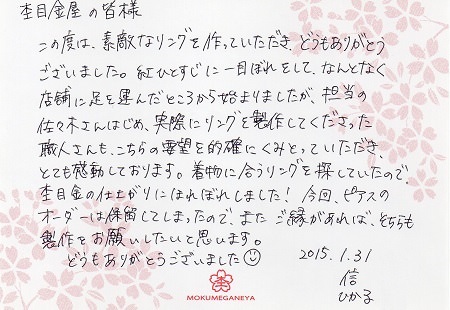 杢目金屋の皆様
この度は、素敵なリングを作っていただき、どうもありがとう
ございました。紅ひとすじに一目ぼれをして、なんとなく
店舗に足を運んだところから始まりましたが、担当の
佐々木さんはじめ、実際にリングを製作してくださった
職人さんも、こちらの要望を的確にくみとっていただき、
とても感動しております。着物に合うリングを探していたので、
杢目金の仕上がりにほれぼれしました！今回、ピアスの
オーダーは保留してしまったので、また ご縁があれば、そちらも
製作をお願いしたいと思います。
どうもありがとうございました
2015.1.31
信
ひか子
MOKUMEGANEYA